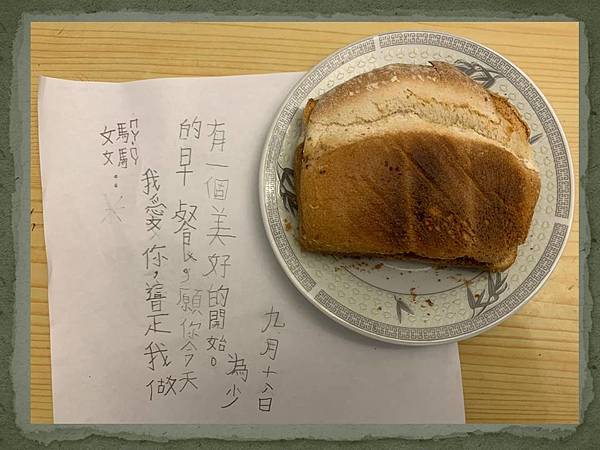 媽媽：
我愛你，這是我做
的早餐，願你今天
有一個美好的開始。
為少
九月十八日